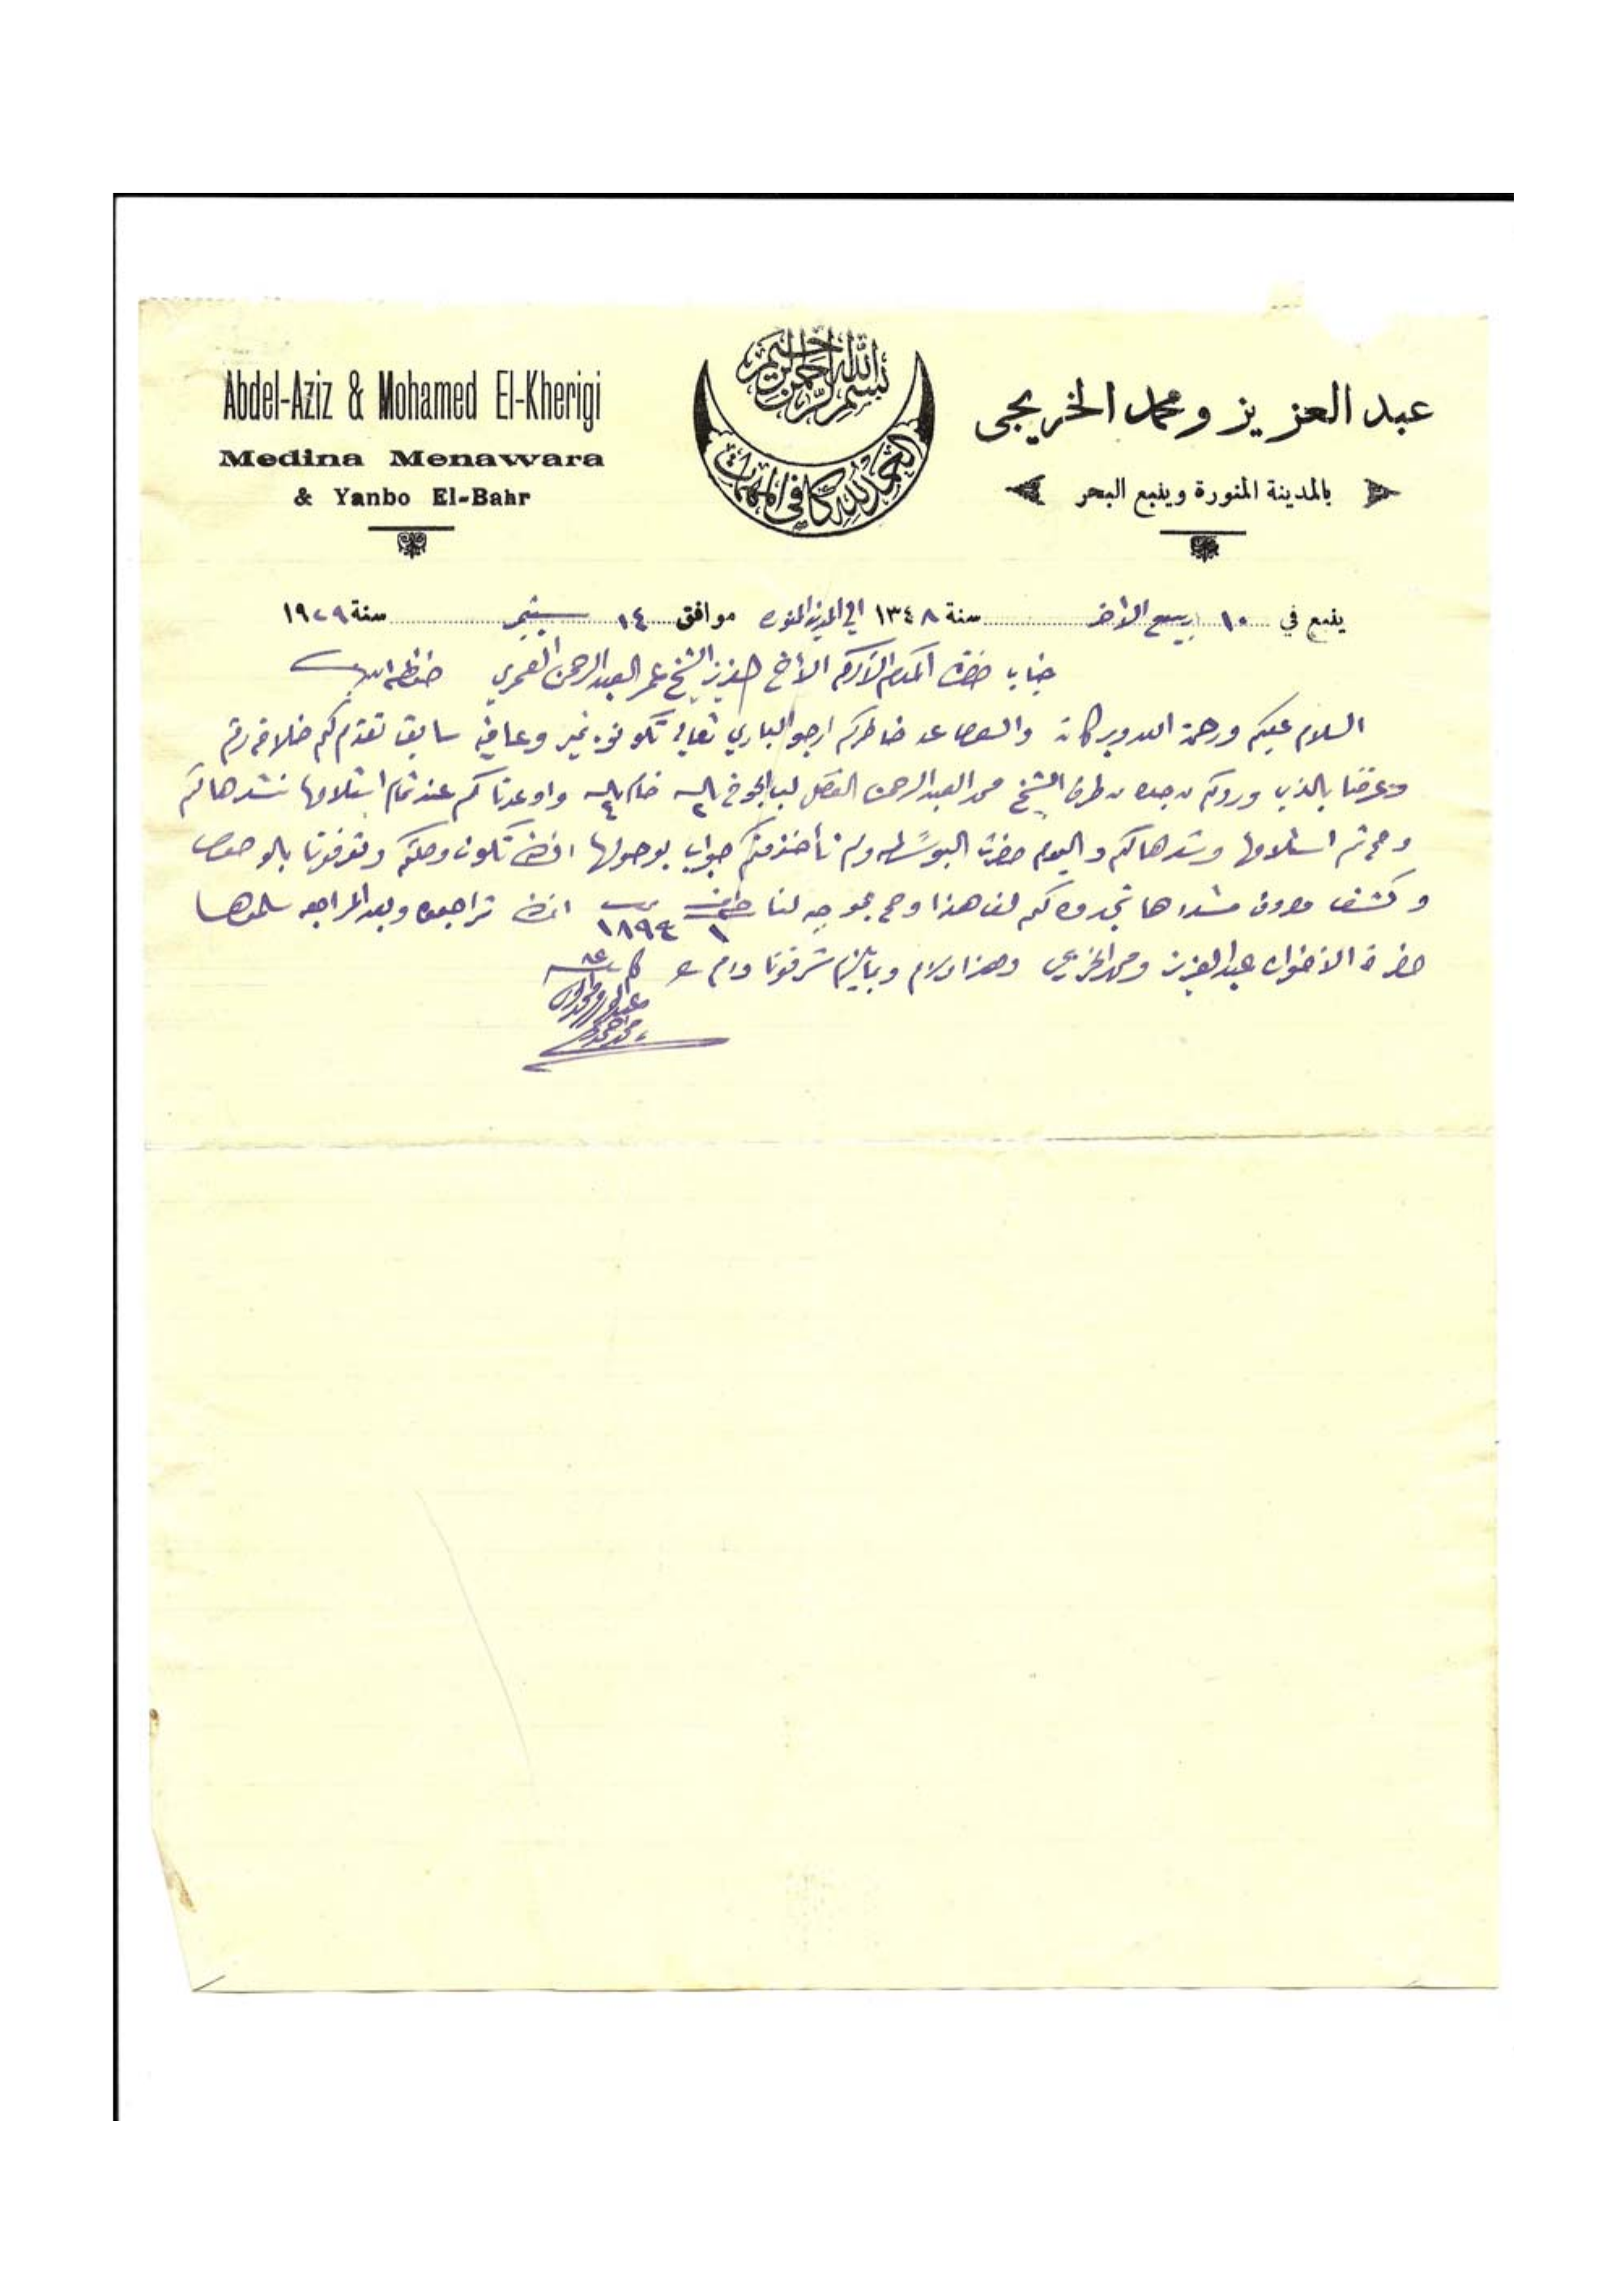 Abdel-Aziz & Mohamed El-Kherigi
Medina Menawara
& Yanbo El-Bahr
بسم الله الرحمن الرحيم
الحمد لله كافي المهمات
عبد العزيز ومحمد الخريجى
بالمدينة المنورة وينبع البحر
ينبع في ١٠ ربيع الآخر سنة ١٣٤٨ الى المدينة المنوره موافق ١٤ سبتمبر سنة ١٩٢٩
جناب حضرة المكرم الأكرم الأخ العزيز الشيخ عمر العبد الرحمن العمري حفظه الله
السلام عليكم ورحمة الله وبركاته والسؤال عن خاطركم ارجو الباري تعالى تكونون بخير وعافيه سابقا تقدم لكم خلافه رقم
وعرفنا بالذي وردكم من جده من طرف الشيخ محمد العبد الرحمن الفضل خام واوعدناكم عند تمام استلامها نشدها لكم
وتم استلامها وشدها لكم واليوم حضرت البوسطه ولم نأخذ منكم جواب بوصولها تكون وصلتكم وتعرفونا بالوصول
وكشف مصروف مشداها تجدوه لكم لف هذا ١ ١٨٩٤ تراجعوه وبعد المراجعه سلموها
حضرة الاخوان عبد العزيز ومحمد الخريجي وهذا ما لزم وبما يلزم شرفونا ودام